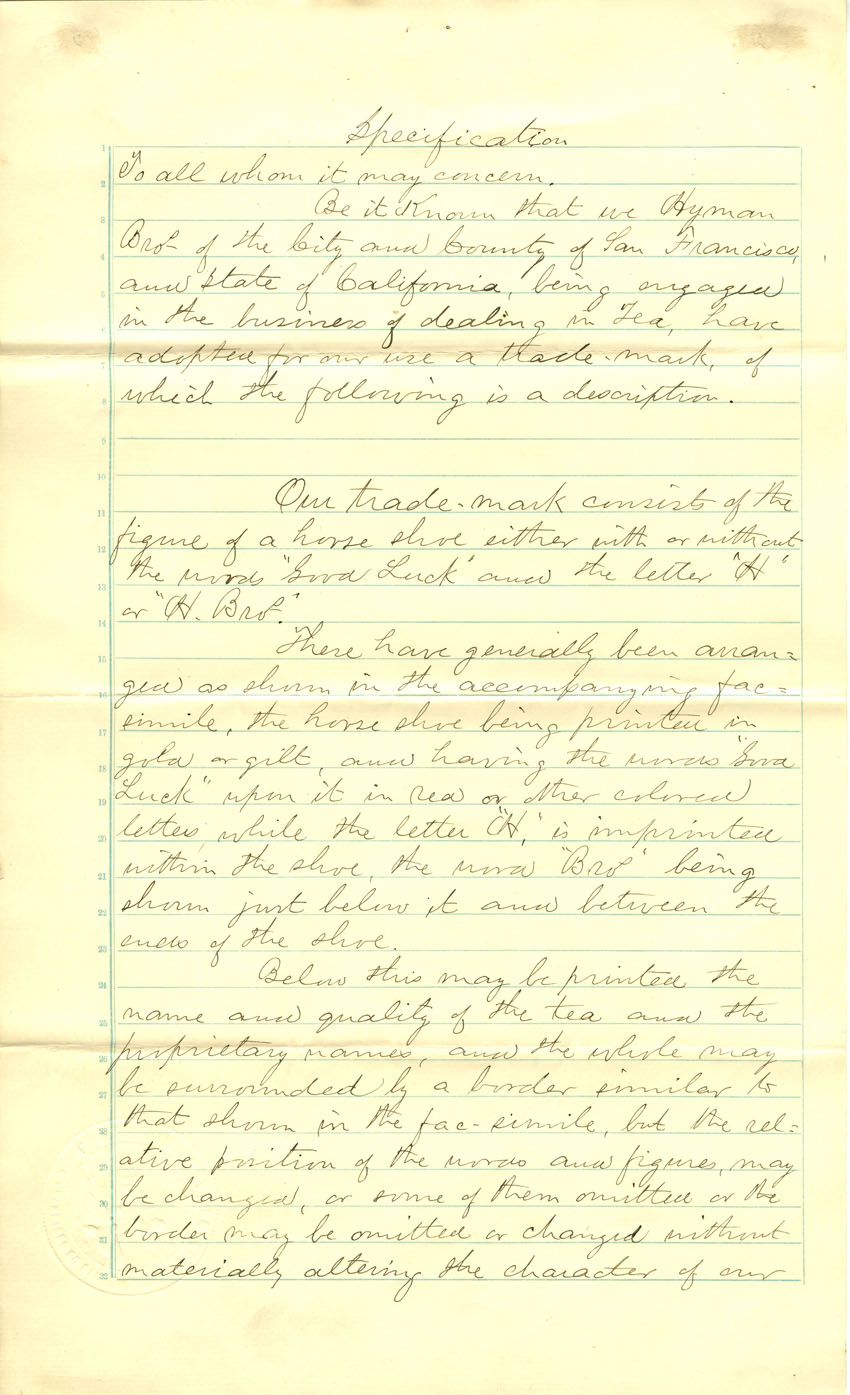 Specification
To all whom it may concern.
Be it Known that we Hyman
Bros of the City and County of San Francisco,
and State of California, being engaged
in the business of dealing in Tea, have
adopted for our use a trade-mark, of
which the following is a description.
Our trade-mark consists of the
figure of a horse shoe either with or without
the words "Good Luck" and the letter "H"
or "H. Bros."
These have generally been arran=
ged as shown in the accompanying fac=
simile, the horse shoe being printed in
gold or gilt, and having the words "Good
Luck" upon it in red or other colored
letters, while the letter "H," is imprinted
within the shoe, the word "Bros" being
shown just below it and between the
ends of the shoe.
Below this may be printed the
name and quality of the tea and the
proprietary names, and the whole may
be surrounded by a border similar to
that shown in the fac-simile, but the rel=
ative position of the words and figures, may
be changed, or some of them omitted or the
border may be omitted or changed without
materially altering the character of our